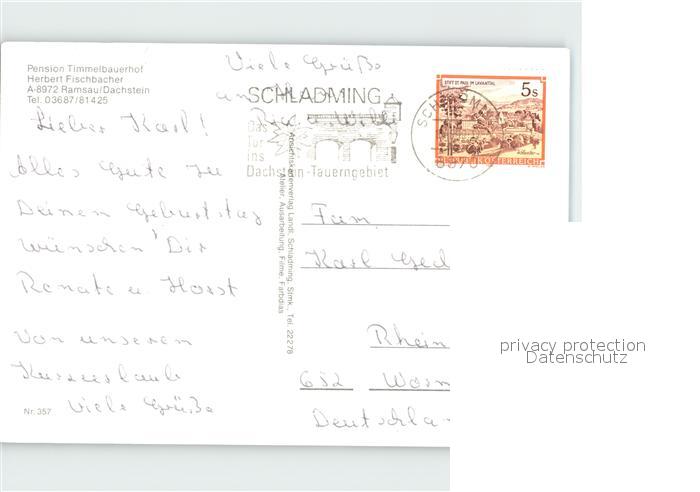 Pension Timmelbauerhof
Herbert Fischbacher
A-8972 Ramsau/Dachstein
Tel. 03687/81425
Viele Grüße
an
SCHLADMING
Das
Tor
ins
Dachstein-Tauerngebiet
STIFT ST. PAUL IM LAVANTTAL
5s
REPUBLIK ÖSTERREICH
Lieber Karl!
Alles Gute zu
Deinem Geburtstag
wünschen Dir
Renate u. Horst
Von unserem
Kurzurlaub
Viele Grüße
Nr. 357
Ansichtskartenverlag Landl, Schladming, Stmk., Tel. 22278
Atelier, Ausarbeitung, Filme, Farbdias
Fam.
Karl
Rhein
652 Worm
Deutschla
privacy protection
Datenschutz